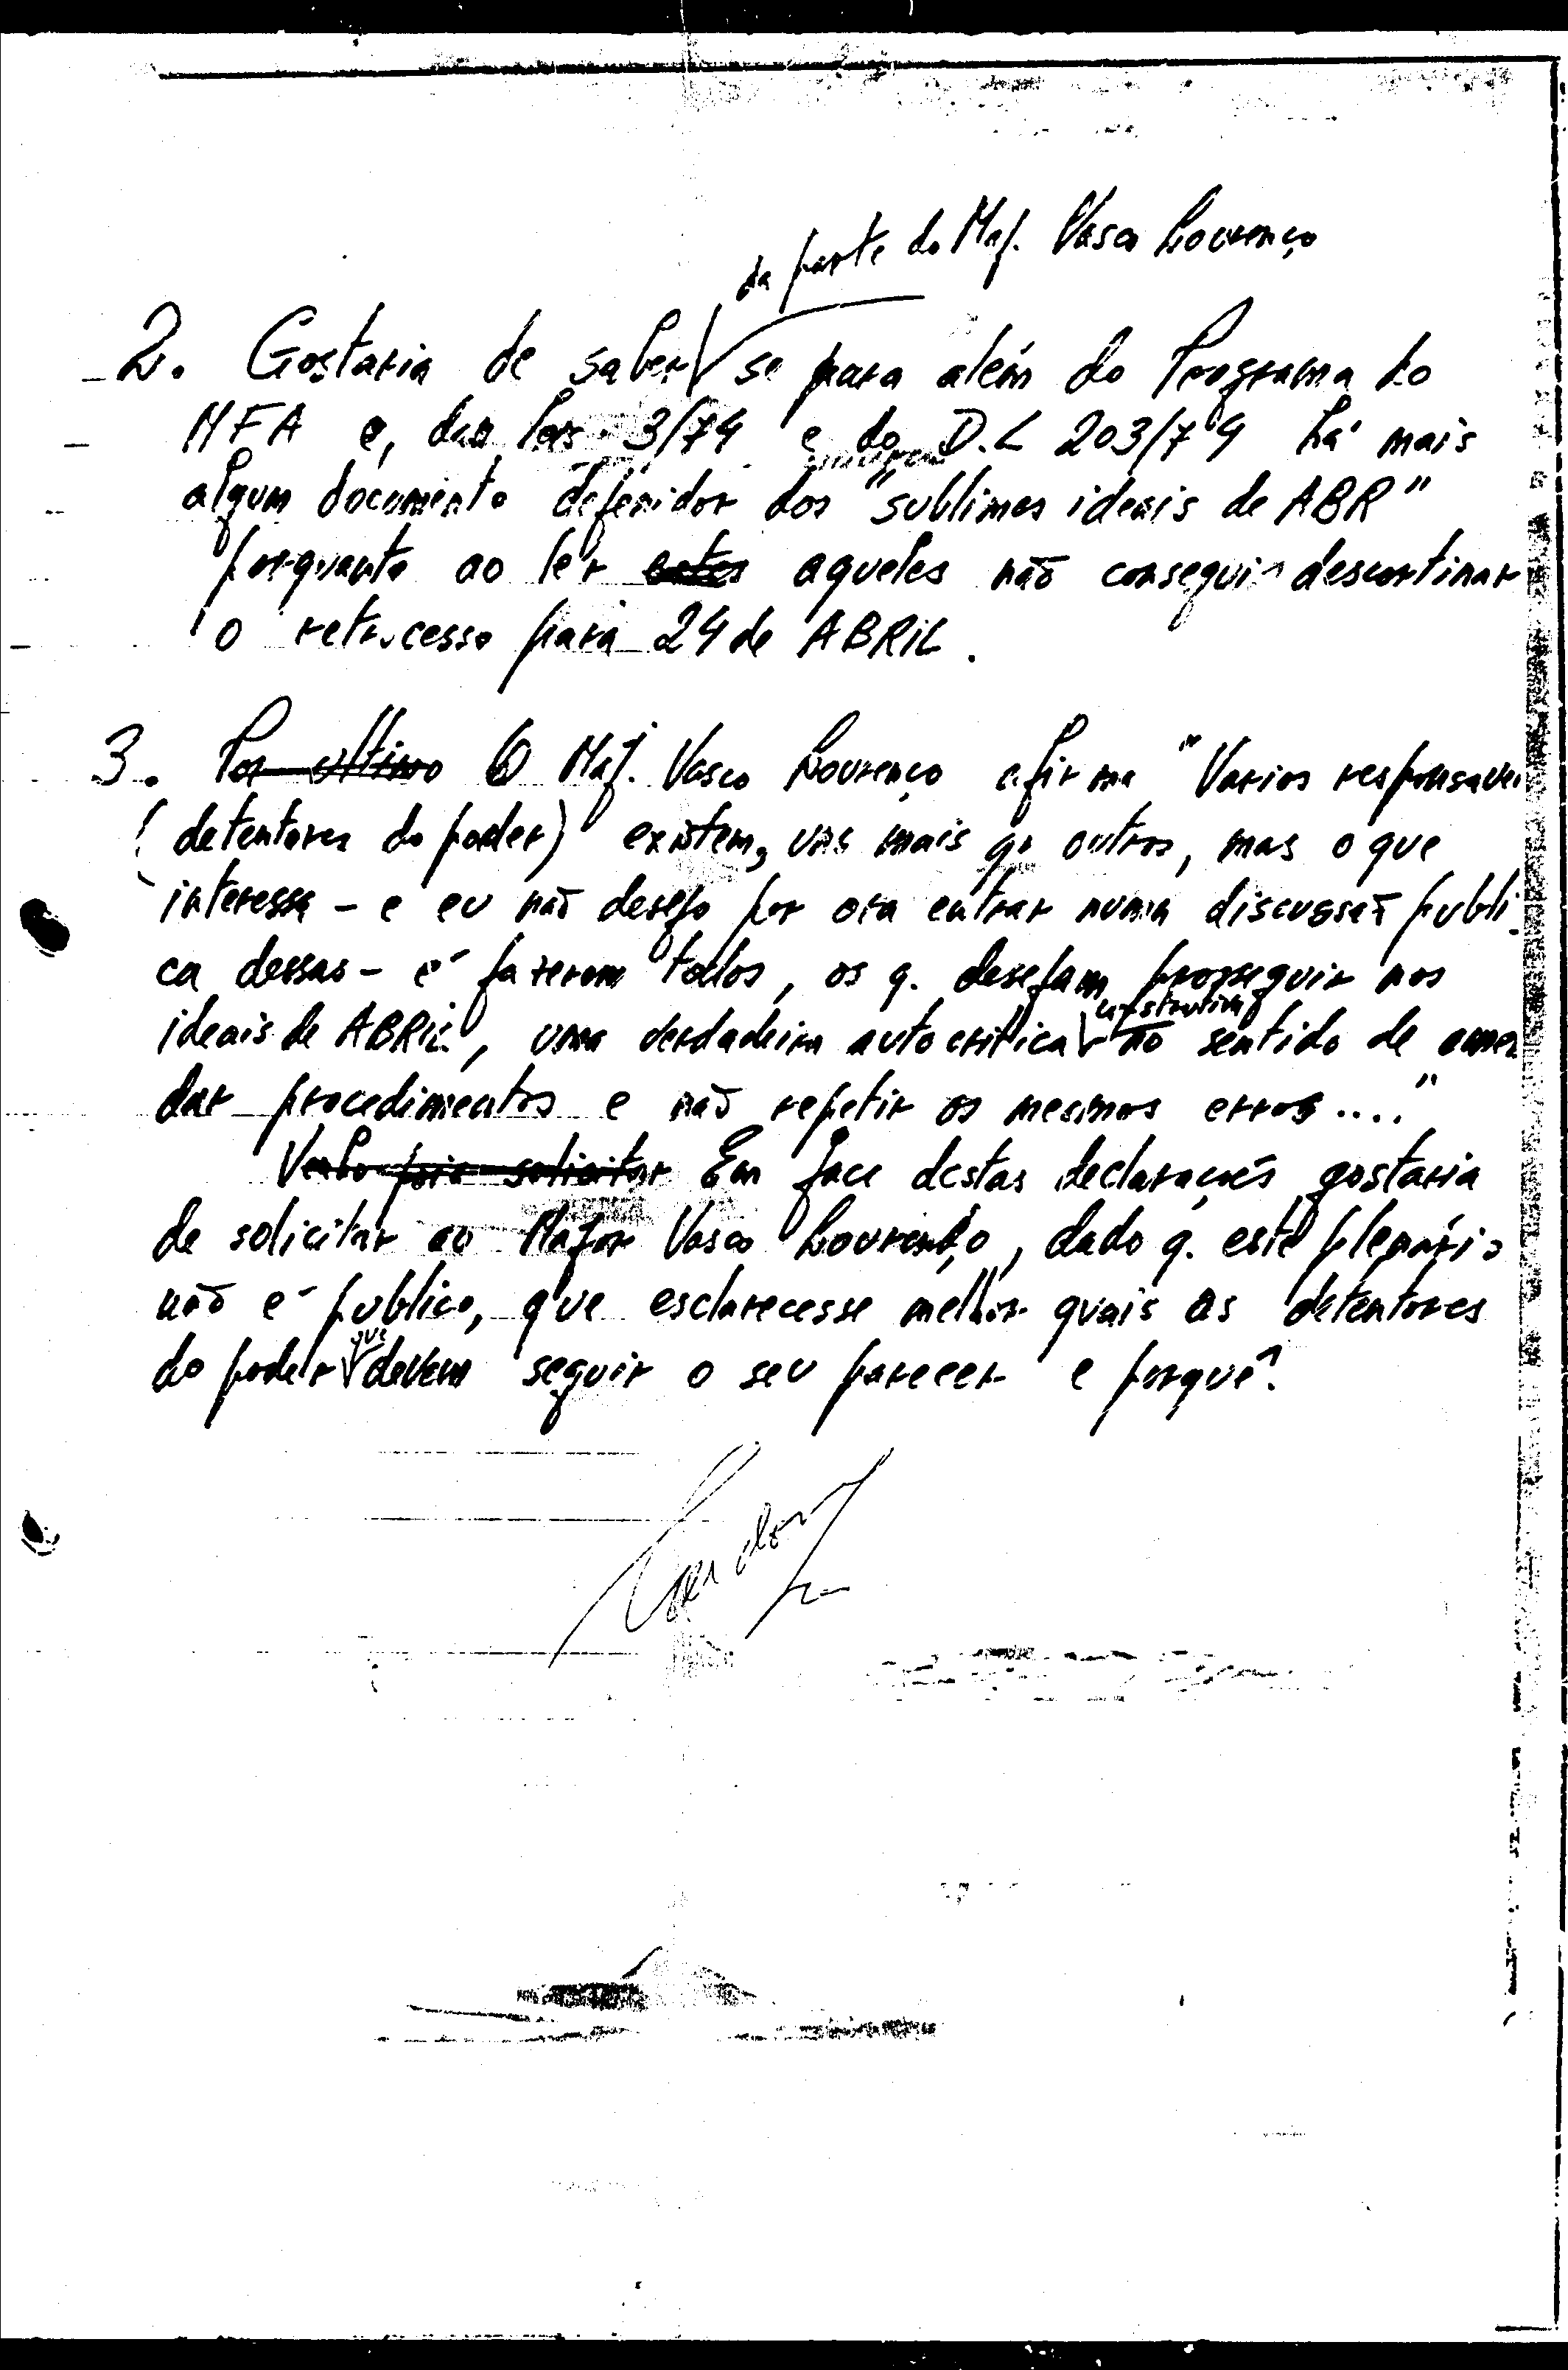 da parte do Maj. Vasco Lourenço
2. Gostaria de saber se para além do Programa do
MFA e, das Leis 3/74 e do D.L 203/74 há mais
algum documento definidor dos "sublimes ideais de ABR"
porquanto ao ler estes aqueles não consegui descortinar
o retrocesso para 24 de ABRIL.
3. Por ultimo O Maj. Vasco Lourenço afirma "Varios responsavei
(detentores do poder) existem, uns mais q. outros, mas o que
interessa - e eu não desejo por ora entrar numa discussão publi-
ca dessas - é fazerem todos, os q. desejam prosseguir nos
construtiva
ideais de ABRIL, uma verdadeira autocritica no sentido de emen
dar procedimentos e não repetir os mesmos erros ...."
Venho solicitar Em face destas declarações gostaria
de solicitar ao Major Vasco Lourenço, dado q. este plenário
não é publico, que esclarecesse melhor quais os detentores
que
do poder devem seguir o seu parecer e porquê?